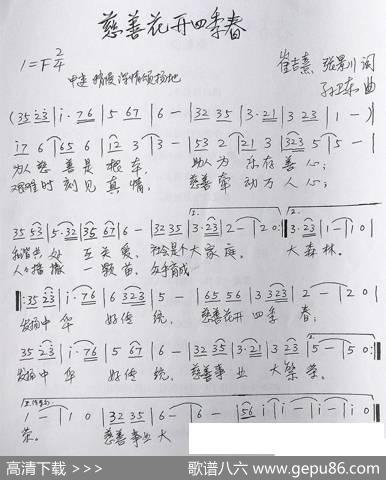 慈善花开四季春
1=F 2/4
中速 稍慢 深情颂扬地
崔吉熹 张景川 词
孙卫东 曲
(35 23 | i· 76 | 5 67 | 6 - | 32 35 | 3·21 | 3 23 | 1 - )
i7 6 | 65 6 | 12 3 | 3 - | 53 2 | 21 3 | 323 5 | 5 - |
为人慈善是根本, 助人为乐存善心;
艰难时刻见真情, 慈善牵动万人心;
35 53 | 5·32 | 35 67 | 6 - | 32 35 | 3·23 | 2 - | 20 :| 3·23 | 1 - | 10 |
和谐共处 互关爱, 社会是个大家庭。 大森林。
人人措撒 一颗苗, 众手育成
|: 35 23 | i· 76 | 6 323 | 5 - | 65 56 | 3 323 | 2 - | 20 |
发扬中华 好传统, 慈善花开四季春;
35 23 | i· 76 | 5 67 | 6 - | 32 35 | 3·21 | 3 23 | 5 - | 50 :|
发扬中华 好传统, 慈善事业大繁荣。
1 - | 1 0 | 32 35 | 6 - | 6 - | 56 i | i - | i - | i 0 |
荣。 慈善事业大
高清下载 >>>
歌谱八六 www.gepu86.com